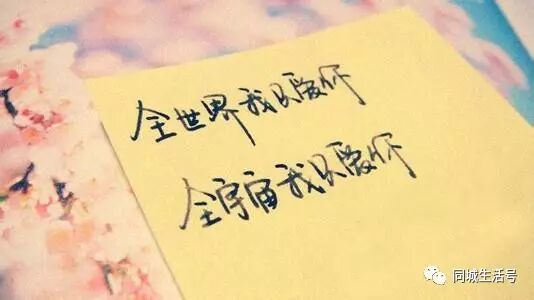 全世界我只爱你
全宇宙我只爱你
同城生活号